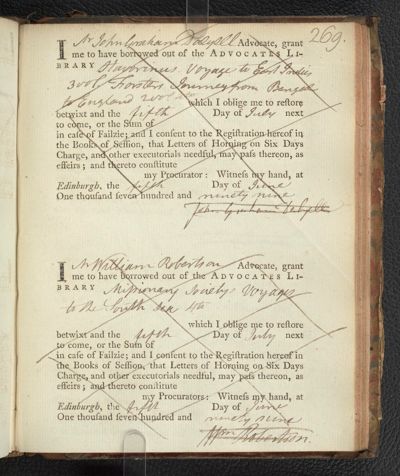 269.
I Mr John Graham Dalyell Advocate, grant
me to have borrowed out of the ADVOCATES LI-
BRARY Stavorinus Voyage to East Indies
3 vols Forsters Journey from Bengal
to England 2 vols 4to which I oblige me to restore
betwixt and the fifth Day of July next
to come, or the Sum of
in case of Failzie; and I consent to the Registration hereof in
the Books of Session, that Letters of Horning on Six Days
Charge, and other executorials needful, may pass thereon, as
effeirs; and thereto constitute
my Procurator: Witness my hand, at
Edinburgh, the fifth Day of June
One thousand seven hundred and ninety nine
John Graham Dalyell
I Mr William Robertson Advocate, grant
me to have borrowed out of the ADVOCATES LI-
BRARY Missionary Society Voyages
to the South Sea 4to
which I oblige me to restore
betwixt and the fifth Day of July next
to come, or the Sum of
in case of Failzie; and I consent to the Registration hereof in
the Books of Session, that Letters of Horning on Six Days
Charge, and other executorials needful, may pass thereon, as
effeirs; and thereto constitute
my Procurators: Witness my hand, at
Edinburgh, the fifth Day of June
One thousand seven hundred and ninety nine
Wm Robertson.